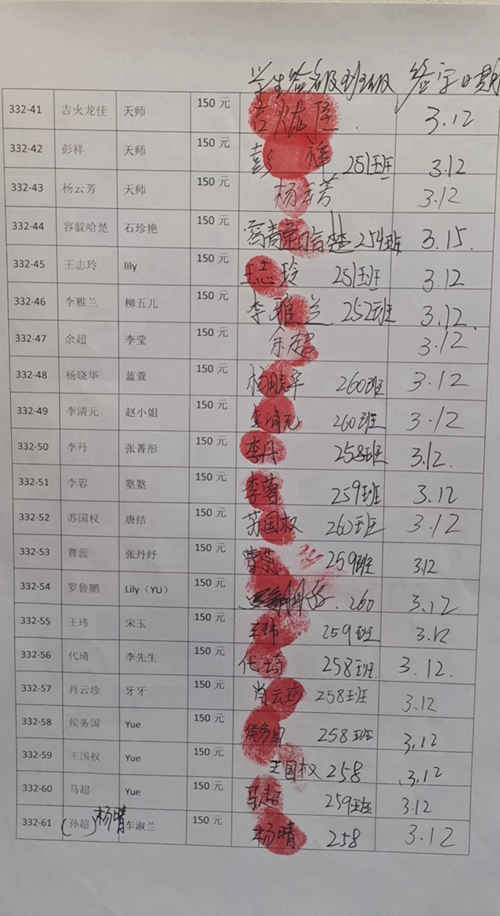 学生签名 班级 签字日期
332-41 吉火龙佳 天师 150 元 3.12
332-42 彭祥 天师 150 元 彭祥 251班 3.12
332-43 杨云芳 天师 150 元 杨云芳 3.12
332-44 蓉靛哈楚 石珍艳 150 元 254班 3.15
332-45 王志玲 lily 150 元 王志玲 251班 3.12
332-46 李雅兰 柳五儿 150 元 李雅兰 252班 3.12
332-47 余超 李莹 150 元 余超 3.12
332-48 杨晓华 蓝萱 150 元 杨晓华 260班 3.12
332-49 李清元 赵小姐 150 元 李清元 260班 3.12
332-50 李丹 张菁彤 150 元 李丹 258班 3.12.
332-51 李蓉 慜慜 150 元 李蓉 259班 3.12
332-52 苏国权 唐结 150 元 苏国权 260班 3.12
332-53 曹蕊 张丹纾 150 元 曹蕊 259班 3.12
332-54 罗鲁鹏 Lily（YU） 150 元 260 3.12
332-55 王玮 宋玉 150 元 王玮 259班 3.12
332-56 代琦 李先生 150 元 代琦 258班. 3.12.
332-57 肖云珍 牙牙 150 元 肖云珍 258班 3.12
332-58 侯务国 Yue 150 元 侯务国 258班 3.12
332-59 王国权 Yue 150 元 王国权 258 3.12
332-60 马超 Yue 150 元 马超 259班 3.12
332-61 (孙超) 杨晴 车淑兰 150 元 杨晴 258 3.12